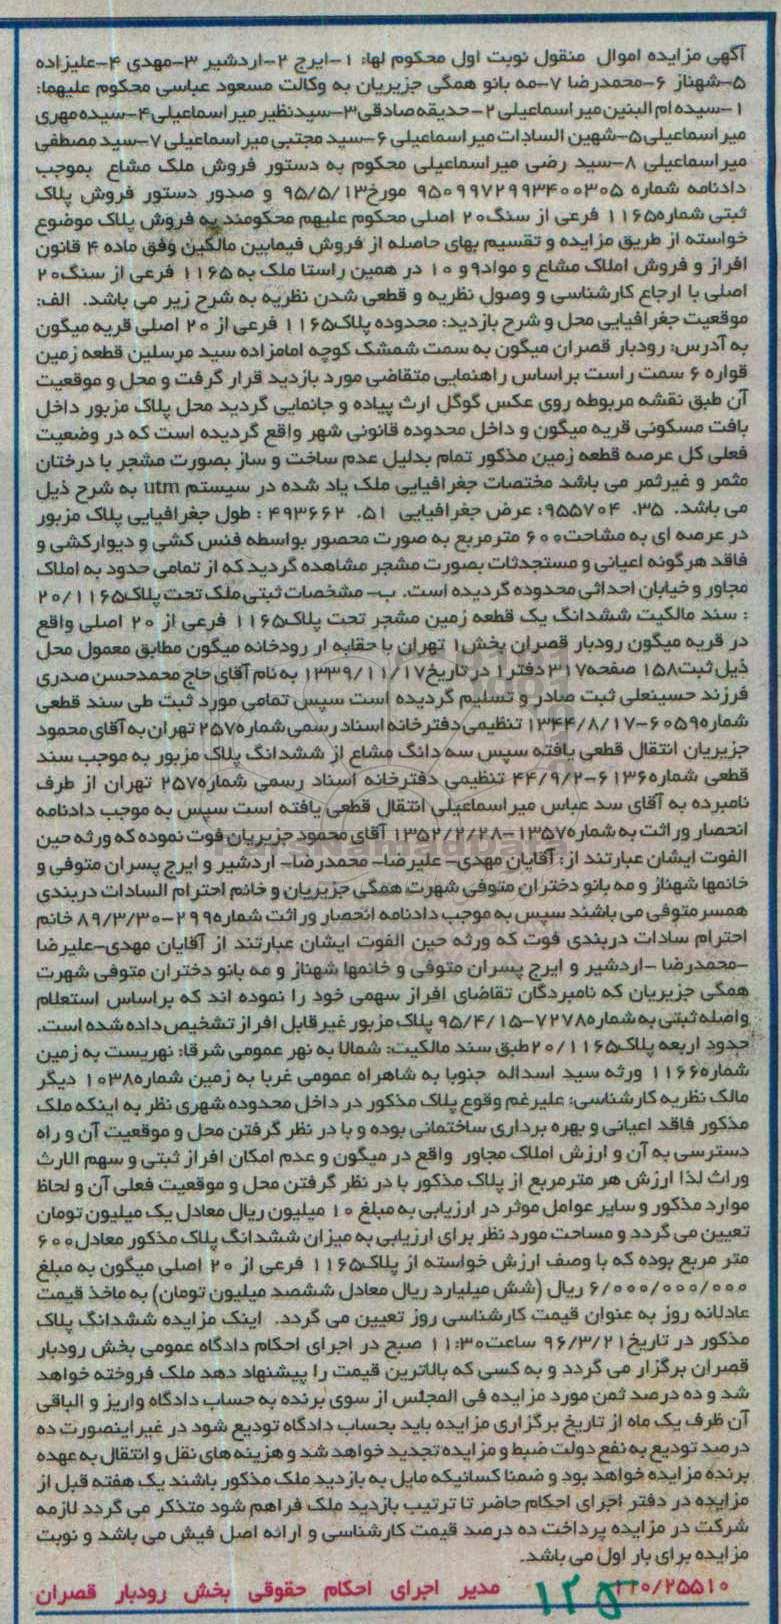 آگهی مزایده اموال منقول نوبت اول محکوم لها: ۱-ایرج ۲-اردشیر ۳-مهدی ۴-علیزاده
۵-شهناز ۶-محمدرضا ۷-مه بانو همگی جزیریان به وکالت مسعود عباسی محکوم علیهما:
۱-سیده ام البنین میر اسماعیلی ۲-حدیقه صادقی ۳-سیدنظیر میر اسماعیلی ۴-سیده مهری
میر اسماعیلی ۵-شهین السادات میر اسماعیلی ۶-سید مجتبی میر اسماعیلی ۷-سید مصطفی
میر اسماعیلی ۸-سید رضی میر اسماعیلی محکوم به دستور فروش ملک مشاع بموجب
دادنامه شماره ۹۵۰۹۹۷۲۹۹۳۴۰۰۳۰۵ مورخ ۹۵/۵/۱۳ و صدور دستور فروش پلاک
ثبتی شماره ۱۱۶۵ فرعی از سنگ ۲۰ اصلی محکوم علیهم محکومند به فروش پلاک موضوع
خواسته از طریق مزایده و تقسیم بهای حاصله از فروش فیمابین مالکین وفق ماده ۴ قانون
افراز و فروش املاک مشاع و مواد ۹ و ۱۰ در همین راستا ملک به ۱۱۶۵ فرعی از سنگ ۲۰
اصلی با ارجاع کارشناسی و وصول نظریه و قطعی شدن نظریه به شرح زیر می باشد. الف:
موقعیت جغرافیایی محل و شرح بازدید: محدوده پلاک ۱۱۶۵ فرعی از ۲۰ اصلی قریه میگون
به آدرس: رودبار قصران میگون به سمت شمشک کوچه امامزاده سید مرسلین قطعه زمین
قواره ۶ سمت راست براساس راهنمایی متقاضی مورد بازدید قرار گرفت و محل و موقعیت
آن طبق نقشه مربوطه روی عکس گوگل ارث پیاده و جانمایی گردید محل پلاک مزبور داخل
بافت مسکونی قریه میگون و داخل محدوده قانونی شهر واقع گردیده است که در وضعیت
فعلی کل عرصه قطعه زمین مذکور تمام بدلیل عدم ساخت و ساز بصورت مشجر با درختان
مثمر و غیرثمر می باشد مختصات جغرافیایی ملک یاد شده در سیستم utm به شرح ذیل
می باشد. ۳۵. ۹۵۵۷۰۴: عرض جغرافیایی ۵۱. ۴۹۳۶۶۲ : طول جغرافیایی پلاک مزبور
در عرصه ای به مشاحت ۶۰۰ مترمربع به صورت محصور بواسطه فنس کشی و دیوارکشی و
فاقد هرگونه اعیانی و مستجدثات بصورت مشجر مشاهده گردید که از تمامی حدود به املاک
مجاور و خیابان احداثی محدوده گردیده است. ب- مشخصات ثبتی ملک تحت پلاک ۲۰/۱۱۶۵
: سند مالکیت ششدانگ یک قطعه زمین مشجر تحت پلاک ۱۱۶۵ فرعی از ۲۰ اصلی واقع
در قریه میگون رودبار قصران بخش ۱ تهران با حقابه از رودخانه میگون مطابق معمول محل
ذیل ثبت ۱۵۸ صفحه ۳۱۷ دفتر ۱ در تاریخ ۱۳۳۹/۱۱/۱۷ به نام آقای حاج محمدحسن صدری
فرزند حسینعلی ثبت صادر و تسلیم گردیده است سپس تمامی مورد ثبت طی سند قطعی
شماره ۶۰۵۹-۱۳۴۴/۸/۱۷ تنظیمی دفترخانه اسناد رسمی شماره ۲۵۷ تهران به آقای محمود
جزیریان انتقال قطعی یافته سپس سه دانگ مشاع از ششدانگ پلاک مزبور به موجب سند
قطعی شماره ۶۱۳۶-۴۴/۹/۲ تنظیمی دفترخانه اسناد رسمی شماره ۲۵۷ تهران از طرف
نامبرده به آقای سد عباس میر اسماعیلی انتقال قطعی یافته است سپس به موجب دادنامه
انحصار وراثت به شماره ۱۳۵۷-۱۳۵۲/۲/۲۸ آقای محمود جزیریان فوت نموده که ورثه حین
الفوت ایشان عبارتند از: آقایان مهدی- علیرضا- محمدرضا- اردشیر و ایرج پسران متوفی و
خانمها شهناز و مه بانو دختران متوفی شهرت همگی جزیریان و خانم احترام السادات دربندی
همسر متوفی می باشند سپس به موجب دادنامه انحصار وراثت شماره ۲۹۹-۸۹/۳/۳۰ خانم
احترام سادات دربندی فوت که ورثه حین الفوت ایشان عبارتند از آقایان مهدی-علیرضا
-محمدرضا -اردشیر و ایرج پسران متوفی و خانمها شهناز و مه بانو دختران متوفی شهرت
همگی جزیریان که نامبردگان تقاضای افراز سهمی خود را نموده اند که براساس استعلام
واصله ثبتی به شماره ۷۲۷۸-۹۵/۴/۱۵ پلاک مزبور غیرقابل افراز تشخیص داده شده است.
حدود اربعه پلاک ۲۰/۱۱۶۵ طبق سند مالکیت: شمالا به نهر عمومی شرقا: نهریست به زمین
شماره ۱۱۶۶ ورثه سید اسداله جنوبا به شاهراه عمومی غربا به زمین شماره ۱۰۳۸ دیگر
مالک نظریه کارشناسی: علیرغم وقوع پلاک مذکور در داخل محدوده شهری نظر به اینکه ملک
مذکور فاقد اعیانی و بهره برداری ساختمانی بوده و با در نظر گرفتن محل و موقعیت آن و راه
دسترسی به آن و ارزش املاک مجاور واقع در میگون و عدم امکان افراز ثبتی و سهم الارث
وراث لذا ارزش هر مترمربع از پلاک مذکور با در نظر گرفتن محل و موقعیت فعلی آن و لحاظ
موارد مذکور و سایر عوامل موثر در ارزیابی به مبلغ ۱۰ میلیون ریال معادل یک میلیون تومان
تعیین می گردد و مساحت مورد نظر برای ارزیابی به میزان ششدانگ پلاک مذکور معادل ۶۰۰
متر مربع بوده که با وصف ارزش خواسته از پلاک ۱۱۶۵ فرعی از ۲۰ اصلی میگون به مبلغ
۶/۰۰۰/۰۰۰/۰۰۰ ریال (شش میلیارد ریال معادل ششصد میلیون تومان) به ماخذ قیمت
عادلانه روز به عنوان قیمت کارشناسی روز تعیین می گردد. اینک مزایده ششدانگ پلاک
مذکور در تاریخ ۹۶/۳/۲۱ ساعت ۱۱:۳۰ صبح در اجرای احکام دادگاه عمومی بخش رودبار
قصران برگزار می گردد و به کسی که بالاترین قیمت را پیشنهاد دهد ملک فروخته خواهد
شد و ده درصد ثمن مورد مزایده فی المجلس از سوی برنده به حساب دادگاه واریز و الباقی
آن ظرف یک ماه از تاریخ برگزاری مزایده باید بحساب دادگاه تودیع شود در غیر اینصورت ده
درصد تودیع به نفع دولت ضبط و مزایده تجدید خواهد شد و هزینه های نقل و انتقال به عهده
برنده مزایده خواهد بود و ضمنا کسانیکه مایل به بازدید ملک مذکور باشند یک هفته قبل از
مزایده در دفتر اجرای احکام حاضر تا ترتیب بازدید ملک فراهم شود متذکر می گردد لازمه
شرکت در مزایده پرداخت ده درصد قیمت کارشناسی و ارائه اصل فیش می باشد و نوبت
مزایده برای بار اول می باشد.
۱۱۰/۲۵۵۱۰ مدیر اجرای احکام حقوقی بخش رودبار قصران